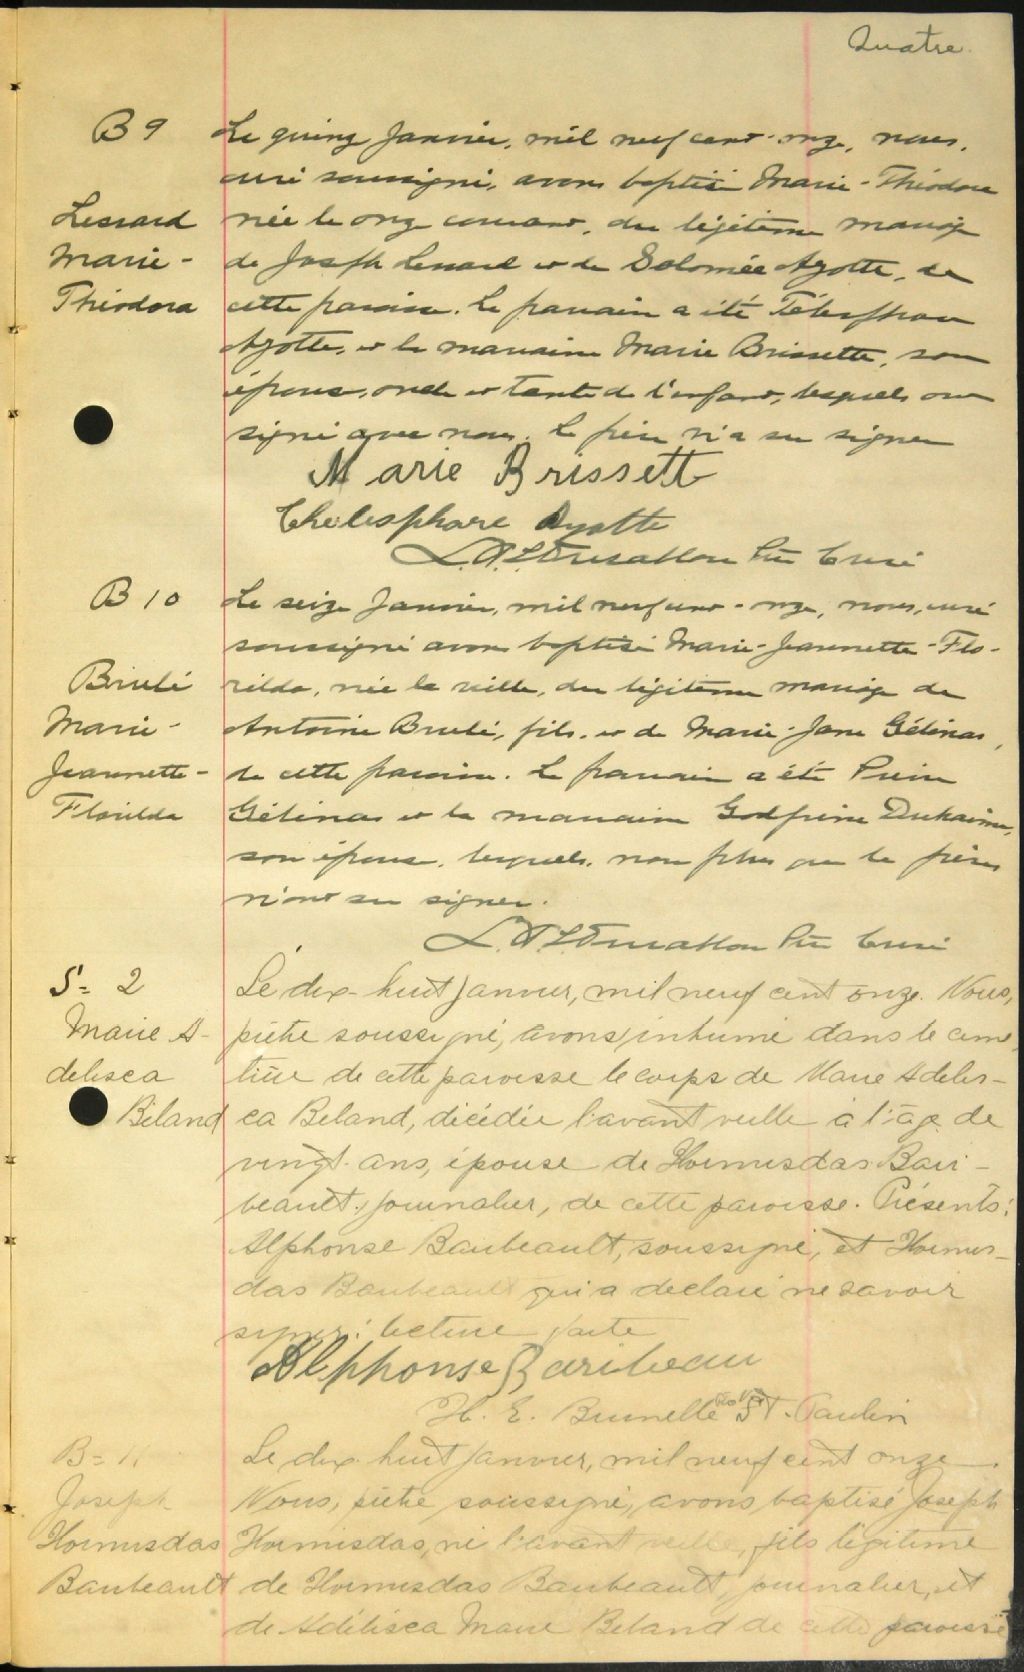 Quatre.
B 9
Lessard
Marie-
Théodora
Le quinz Janvier, mil neuf cent-onze, nous,
curé soussigné, avons baptisé Marie-Théodora
née le onze courant, du légitime mariage
de Joseph Lessard et de Salomée Ayotte, de
cette paroisse. Le parrain a été Télesphore
Ayotte, et la marraine Marie Brissette, son
épouse, oncle et tante de l'enfant, lesquels ont
signé avec nous. Le père n'a su signer
Marie Brissett
Thelesphore Ayotte
Ptre Curé
B 10
Brulé
Marie-
Jeannette-
Florilda
Le seize Janvier, mil neuf cent-onze, nous, curé
soussigné avons baptisé Marie-Jeannette-Flo-
rilda, née la veille, du légitime mariage de
Antoine Brulé, fils, et de Marie-Jane Gélinas,
de cette paroisse. Le parrain a été
Gélinas et la marraine Duhaime,
son épouse, lesquels, non plus que le père,
n'ont su signer.
Ptre Curé
S = 2
Marie A-
delisca
Béland
Le dix-huit janvier, mil neuf cent onze. Nous,
prêtre soussigné, avons inhumé dans le cime
tière de cette paroisse le corps de Marie Adelis-
ca Beland, décédée l'avant veille à l'âge de
vingt-ans, épouse de Hormisdas Bari-
beault, journalier, de cette paroisse. Présents:
Alphonse Baribeault, soussigné, et Hormis-
das Baribeault qui a déclaré ne savoir
signer: lecture faite
Alphonse Baribeau
H. E. Brunelle St-Paulin
B = 11
Joseph
Hormisdas
Baribeault
Le dix-huit janvier, mil neuf cent onze.
Nous, prêtre soussigné, avons baptisé Joseph
Hormisdas, né l'avant veille, fils légitime
de Hormisdas Baribeault, journalier, et
de Adélisca Marie Beland de cette paroisse